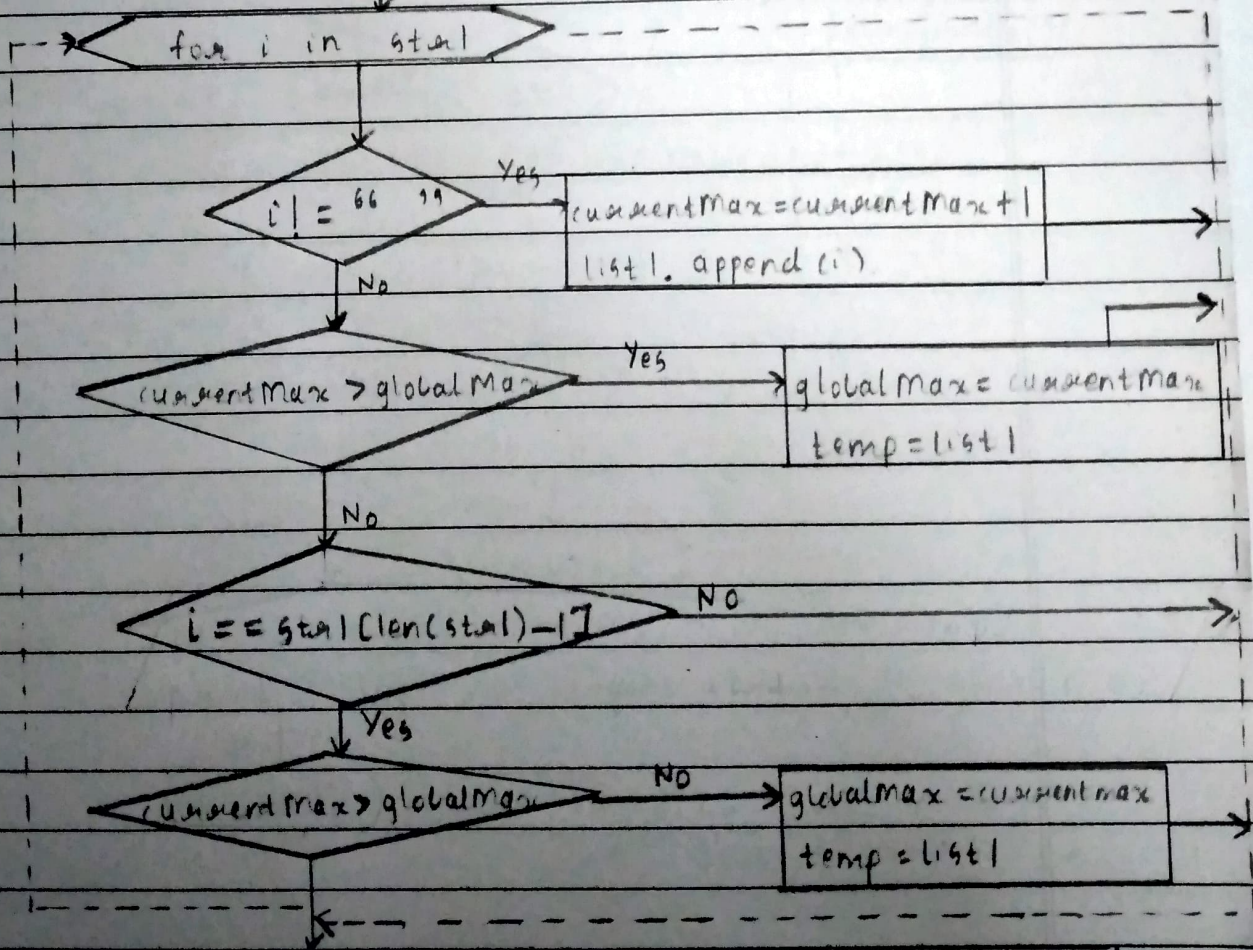 for i in str1
Yes
i != " "
currentMax = currentMax + 1
list1. append (i)
No
Yes
currentMax > globalMax
globalMax = currentMax
temp = list1
No
No
i == str1[len(str1)-1]
Yes
No
currentMax > globalMax
globalMax = currentmax
temp = list1